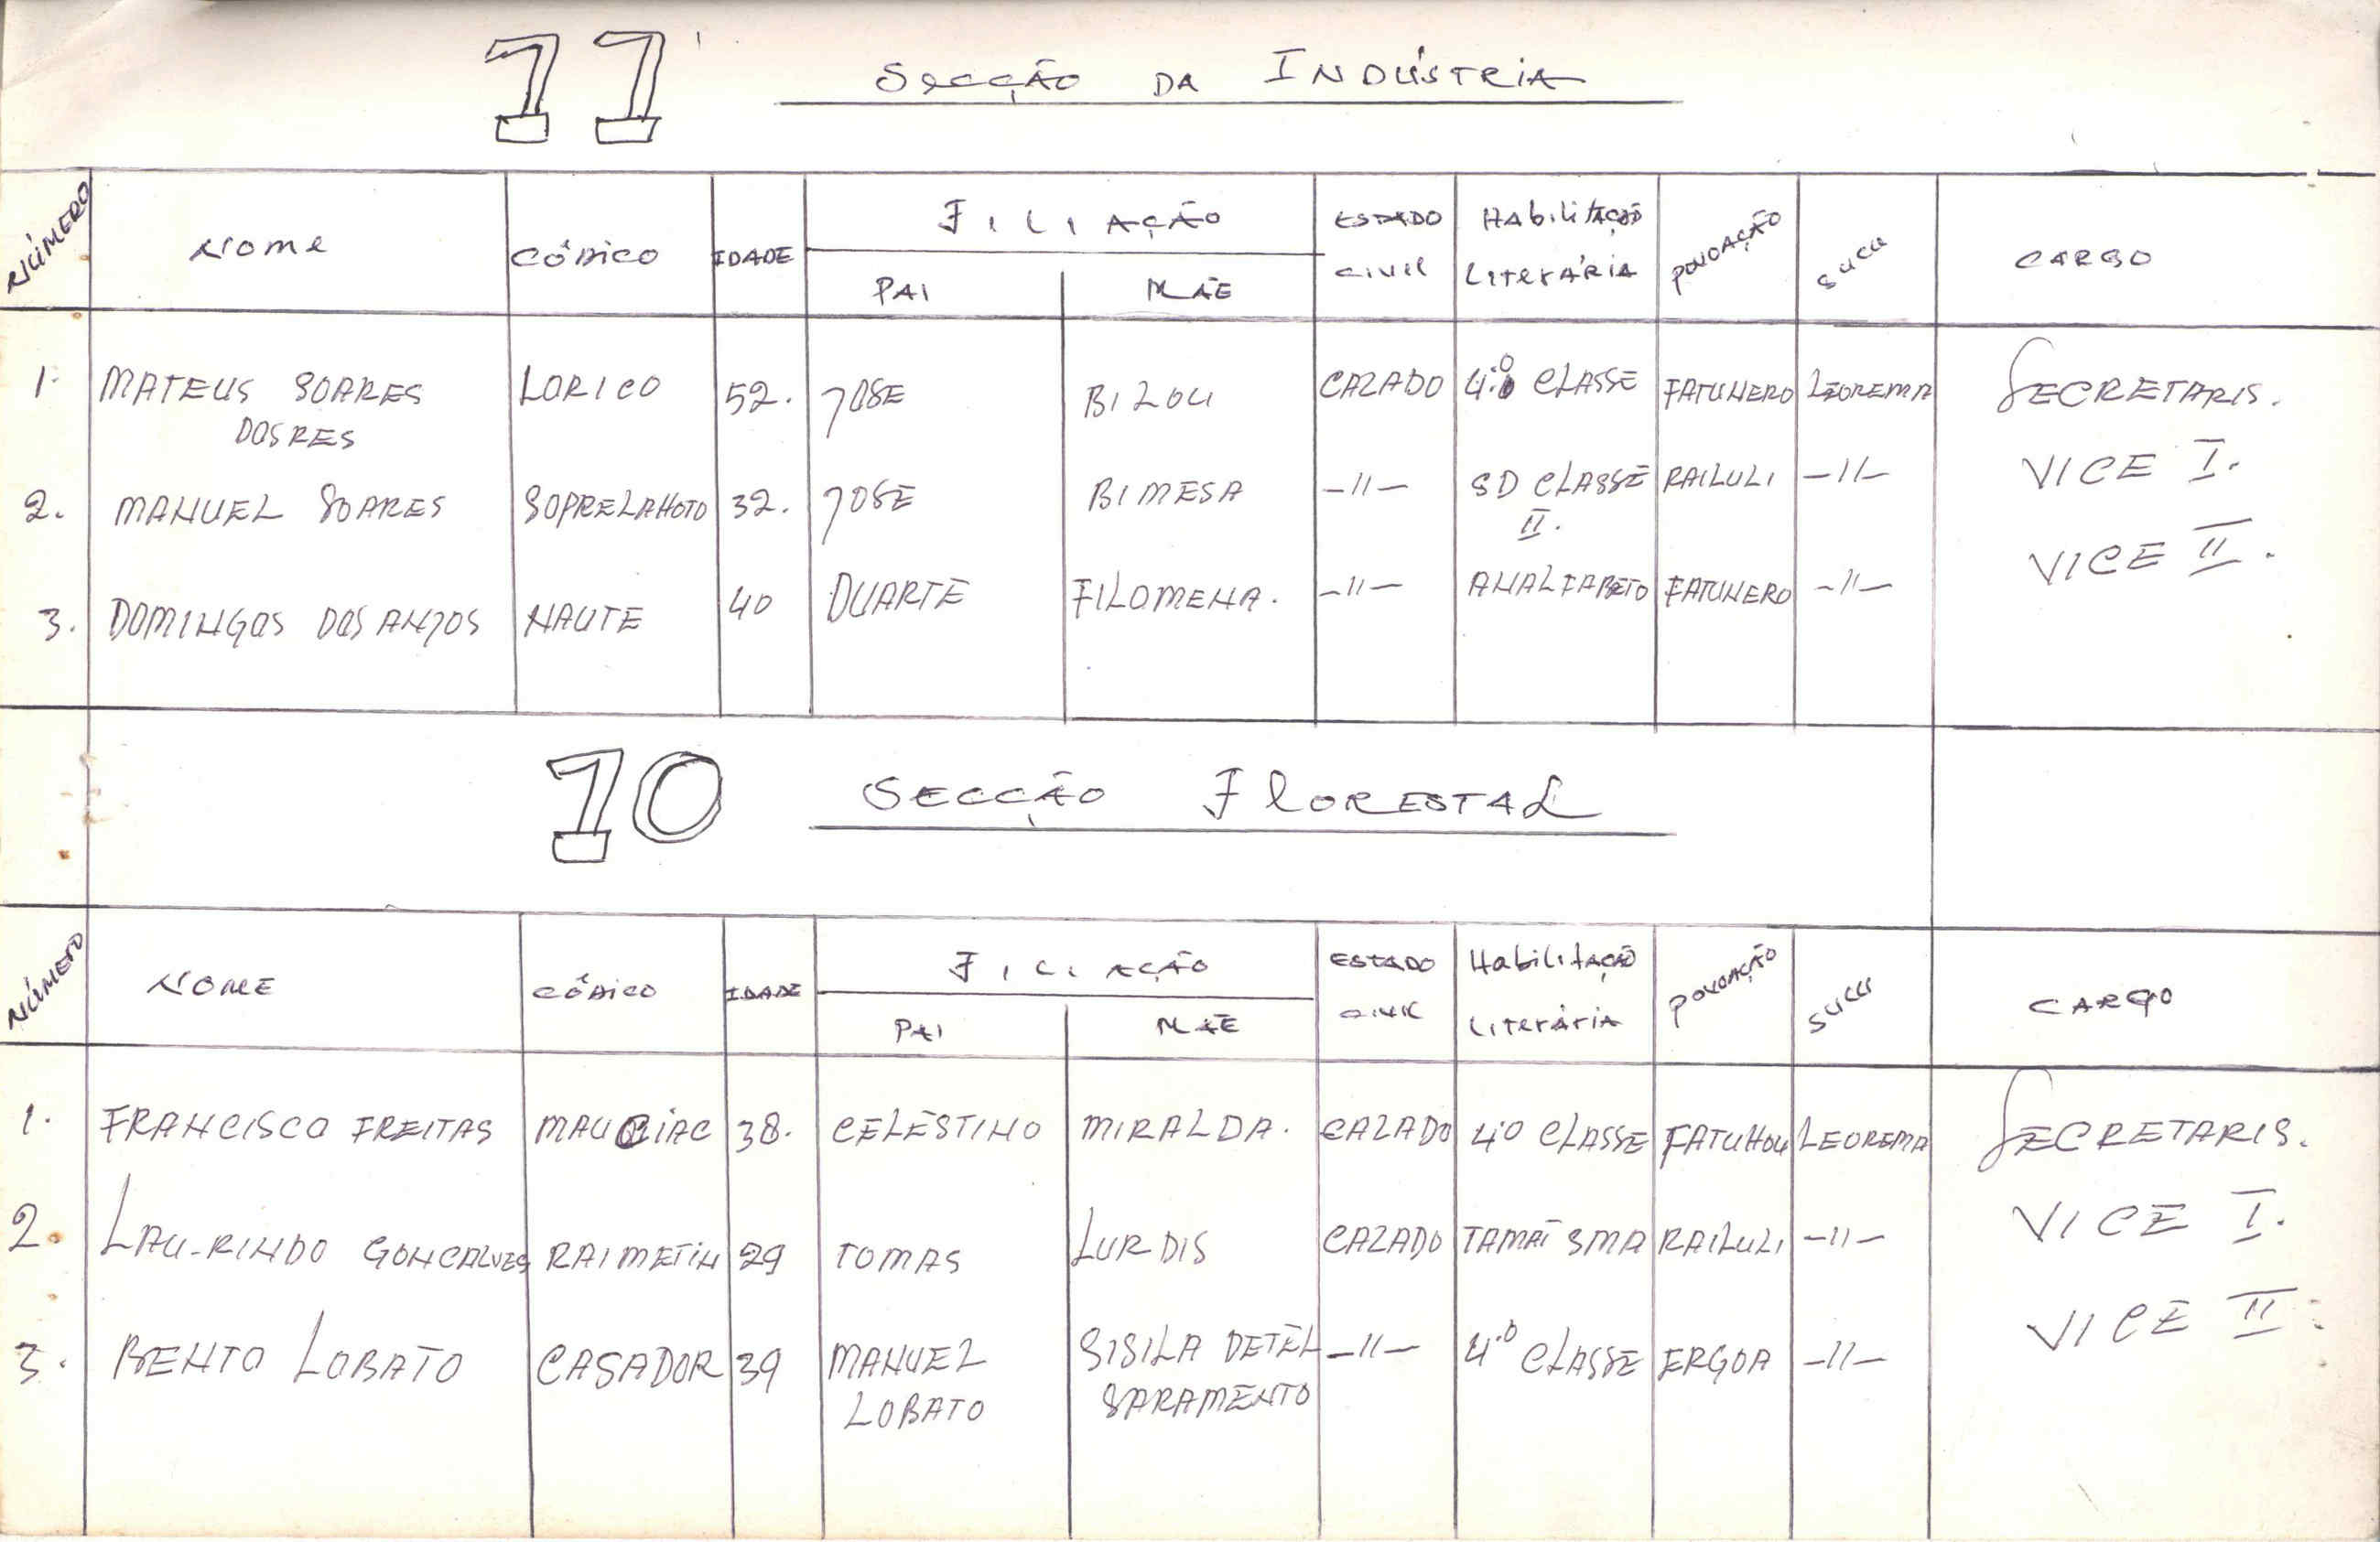 11 SECÇÃO DA INDÚSTRIA
NÚMERO NOME CÔDICO IDADE FILIAÇÃO PAI MÃE ESTADO CIVIL HABILITAÇÃO LITERÁRIA POVOAÇÃO SUCU CARGO
1. MATEUS SOARES DOS RES LORICO 52. JOSE BIZOU CAZADO 4.º CLASSE FATUNERO LEOREMA SECRETARIS.
2. MANUEL SOARES SOPRELAHOTO 32. JOSE BIMESA -11- SD CLASSE II. RAILULI -11- VICE I.
3. DOMINGOS DOS ANJOS NAUTE 40 DUARTE FILOMENA. -11- ANALFABETO FATUNERO -11- VICE II.
10 SECÇÃO FLORESTAL
NÚMERO NOME CÔDICO IDADE FILIAÇÃO PAI MÃE ESTADO CIVIL HABILITAÇÃO LITERÁRIA POVOAÇÃO SUCU CARGO
1. FRANCISCO FREITAS 38. CELESTINO MIRALDA. CAZADO 4º CLASSE FATUHOU LEOREMA SECRETARIS.
2. LAU-RINDO GONCALVES RAIMETIN 29 TOMAS LURDIS CAZADO TAMAÍ SMA RAILULI -11- VICE I.
3. BENTO LOBATO CASADOR 39 MANUEL LOBATO SISILA DETEL SARAMENTO -11- 4.º CLASSE ERGOA -11- VICE II.